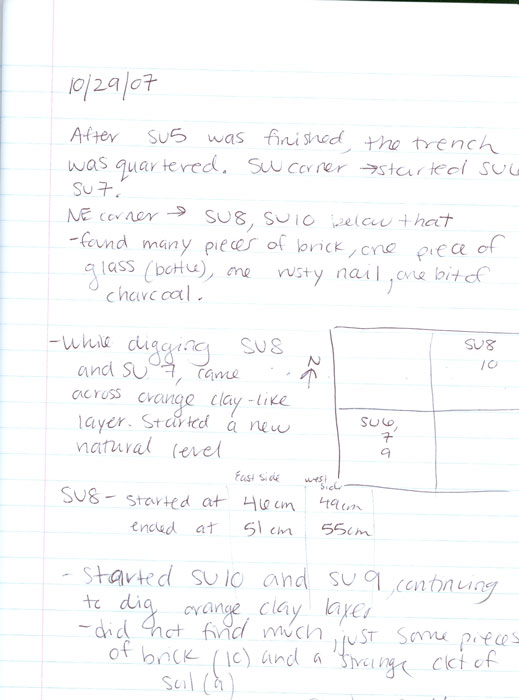 10/29/07
After SU5 was finished, the trench
was quartered. SW corner → started SU6
SU7.
NE corner → SU8, SU10 below that
-found many pieces of brick, one piece of
glass (bottle), one rusty nail, one bit of
charcoal.
-While digging SU8
and SU 7, came
across orange clay-like
layer. Started a new
natural level
N
SU8
10
SU6,
7
9
East side west side
SU8 - started at 46cm 49cm
ended at 51cm 55cm
- Started SU10 and SU9, continuing
to dig orange clay layer
-did not find much, just some pieces
of brick (10) and a strange clot of
soil (9)